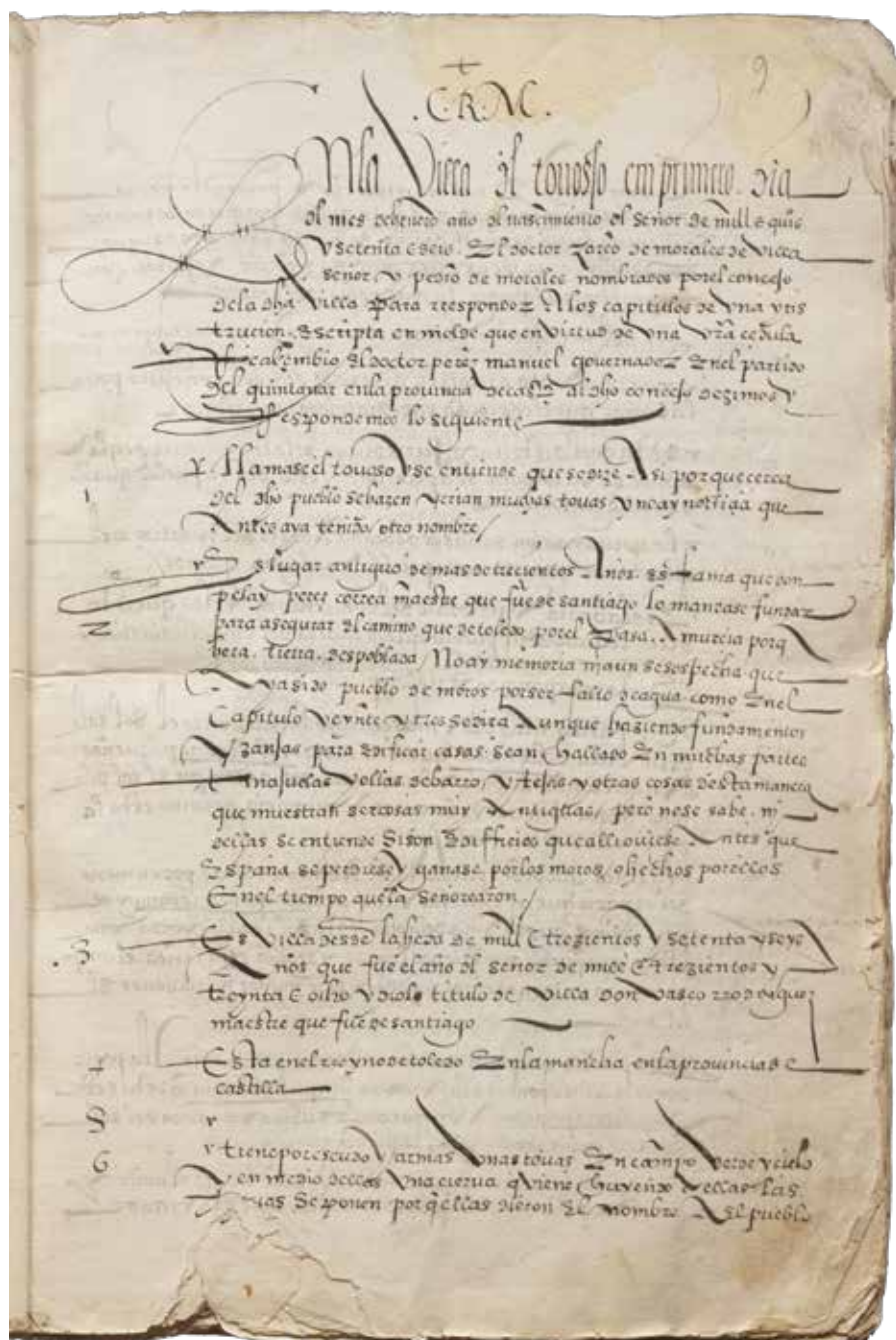 9
.C.R.M.
En la Villa del touosso em primero. dia
del mes de henero año del nascimiento del señor de mill e quis
y setenta e seis. El doctor Zarco de morales de villa
señor. y pedro de morales nombrados por el concejo
de la dha villa para rresponder A los capitulos de vna yns
trucion. Escripta en molde que en virtud de vna vra cedula
Real embio el doctor perez manuel governador En el partido
del quintanar en la prouincia de castª al dho concejo dezimos y
Respondemos lo siguiente
1
Y. llamase el touoso y se entiende que se dize Asi porque cerca
del dho pueblo se hazen y crian muchas touas y no ay notiçia que
Antes aya tenido otro nombre /
2
Es lugar antiguo de mas de trecientos Años. Es fama que don
pelay perez correa maestre que fue de santiago lo mandase fundar
para asegurar el camino que de toledo por el Pasa. A murcia porq
hera. tierra. despoblada / No ay memoria ni aun se sospecha que
Aya sido pueblo de moros por ser falto de agua como En el
Capitulo veynte y tres se dira Aunque haziendo fundamentos
y zanjas para Edificar casas se an hallado En muchas partes
tinajuelas y ollas de barro, y tejas y otras cosas desta manera
que muestran ser cosas muy Antiguas, pero no se sabe. ni
dellas se entiende Si son Edifficios que alli ouiese Antes que
España se perdiese y ganase por los moros, o hechos por ellos
En el tiempo que la Señorearon /
.3
Es Villa desde la hera de mill e trezientos y setenta y seys
Años que fue el año del señor de mill E trezientos y
treynta e ocho y diole titulo de Villa don Vasco rrodriguez
maestre que fue de santiago
4
Esta en el rreyno de toledo En la mancha en la prouincia de
castilla
5
6
tiene por escudo y armas Vnas touas En campo Verde y cielo
y en medio dellas Vna cierua q viene huyendo dellas las
touas Se ponen por q ellas dieron El nombre Al pueblo